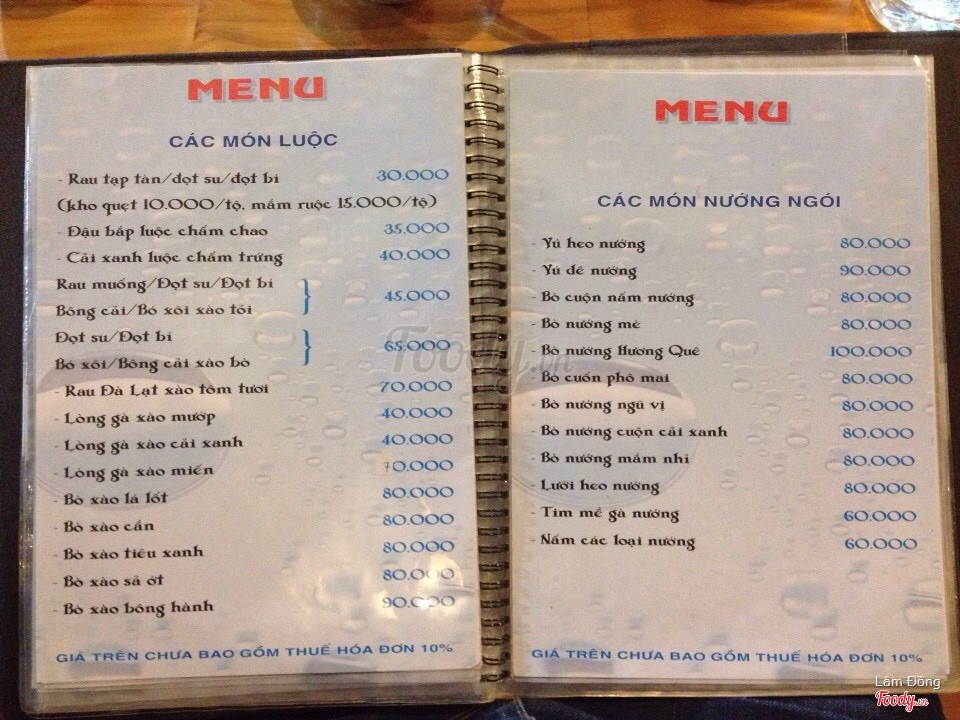 MENU
CÁC MÓN LUỘC
- Rau tạp tàn/đọt su/đọt bí 30.000
(kho quẹt 10.000/tộ, mắm ruộc 15.000/tộ)
- Đậu bắp luộc chấm chao 35.000
- Cải xanh luộc chấm trứng 40.000
Rau muống/Đọt su/Đọt bí
Bông cải/Bó xôi xào tỏi } 45.000
Đọt su/Đọt bí
Bó xôi/Bông cải xào bò } 65.000
- Rau Đà Lạt xào tôm tươi 70.000
- Lòng gà xào mướp 40.000
- Lòng gà xào cải xanh 40.000
- Lòng gà xào miến 70.000
- Bò xào lá lốt 80.000
- Bò xào cần 80.000
- Bò xào tiêu xanh 80.000
- Bò xào sả ớt 80.000
- Bò xào bông hành 90.000
GIÁ TRÊN CHƯA BAO GỒM THUẾ HÓA ĐƠN 10%
MENU
CÁC MÓN NƯỚNG NGÓI
- Vú heo nướng 80.000
- Vú dê nướng 90.000
- Bò cuộn nấm nướng 80.000
- Bò nướng mè 80.000
- Bò nướng Hương Quê 100.000
- Bò cuốn phô mai 80.000
- Bò nướng ngũ vị 80.000
- Bò nướng cuộn cải xanh 80.000
- Bò nướng mắm nhỉ 80.000
- Lưỡi heo nướng 80.000
- Tim mề gà nướng 60.000
- Nấm các loại nướng 60.000
GIÁ TRÊN CHƯA BAO GỒM THUẾ HÓA ĐƠN 10%
Foody.vn
Lâm Đồng
Foody.vn